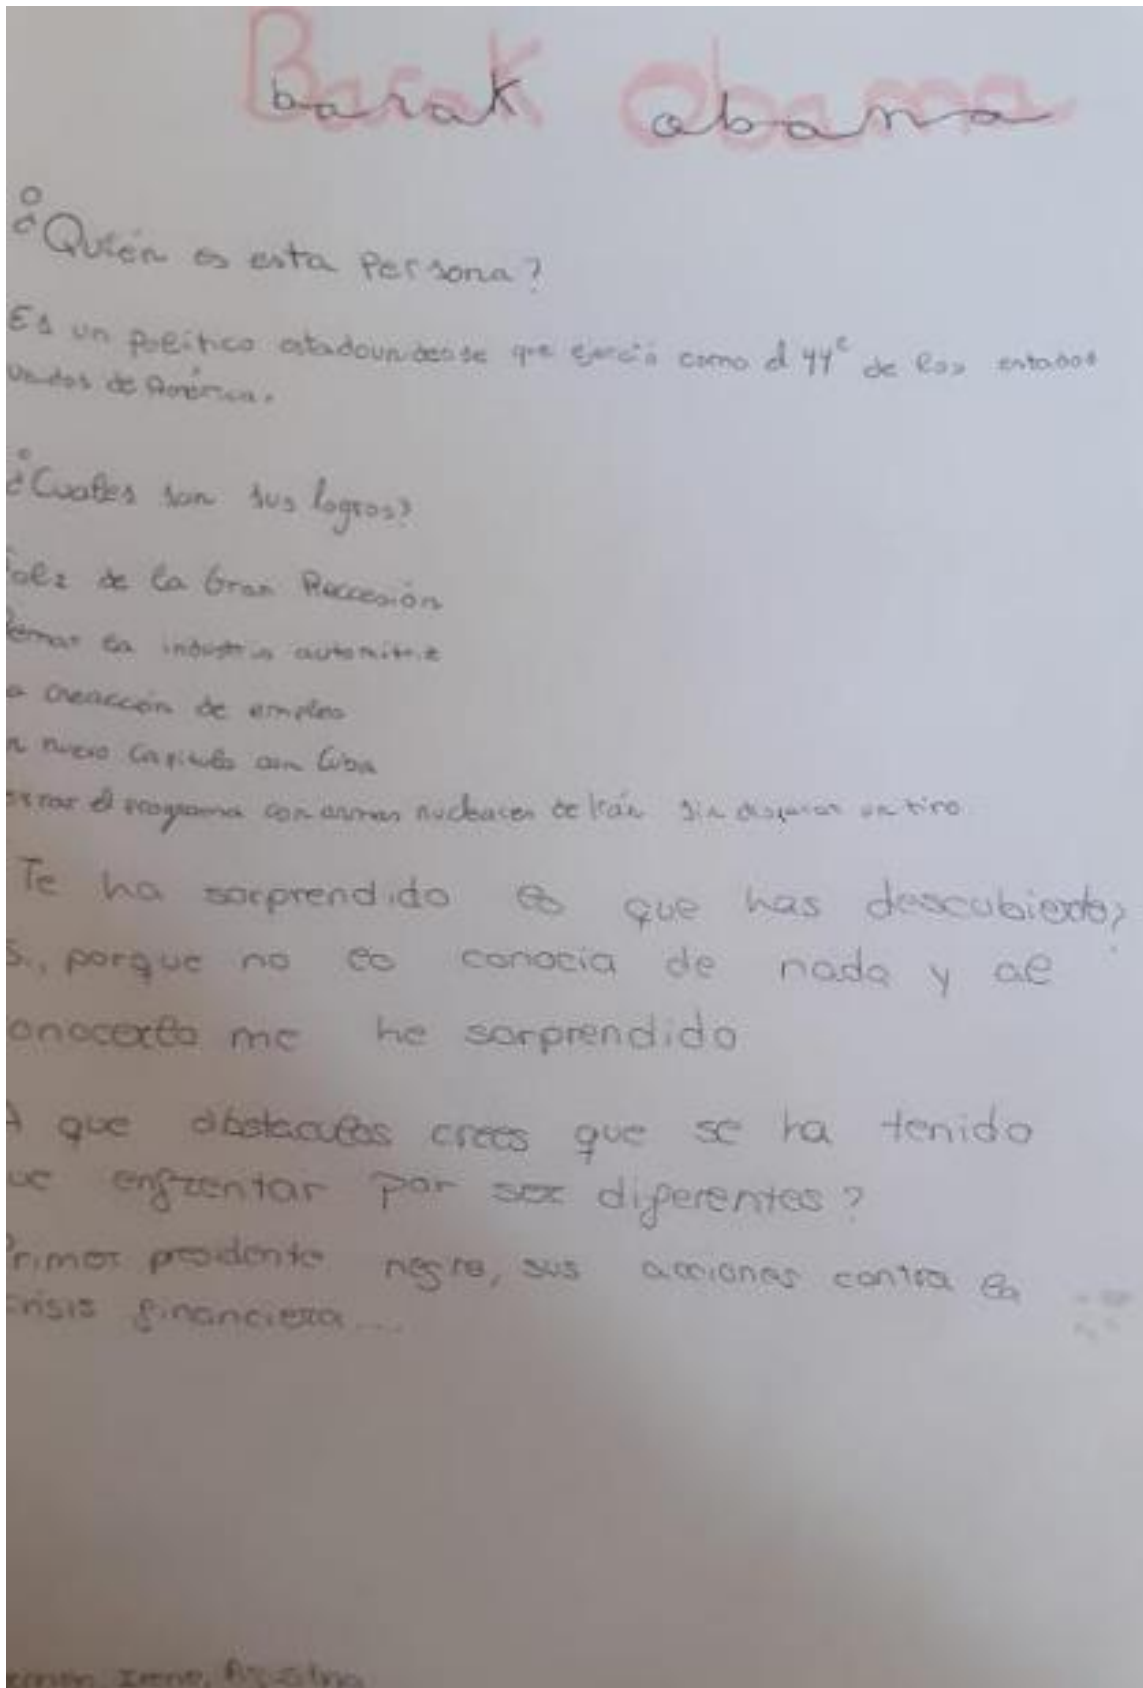 Barak Obama
barak obama
¿Quién es esta Persona?
Es un político estadounidense que ejerció como el 44º de los estados
Unidos de América.
¿Cuales son sus logros?
de la Gran Reccesión
la industria automitriz
creacción de empleo
nuevo Capitulo con Cuba
el programa con armas nucleares de Irán sin disparar un tiro
Te ha sorprendido lo que has descubierto?
Si, porque no lo conocia de nada y al
onocerlo me he sorprendido
A que obstaculos crees que se ha tenido
ue enfrentar por ser diferentes?
Primer presidente negro, sus acciones contra la
crisis financiera....
Irene,